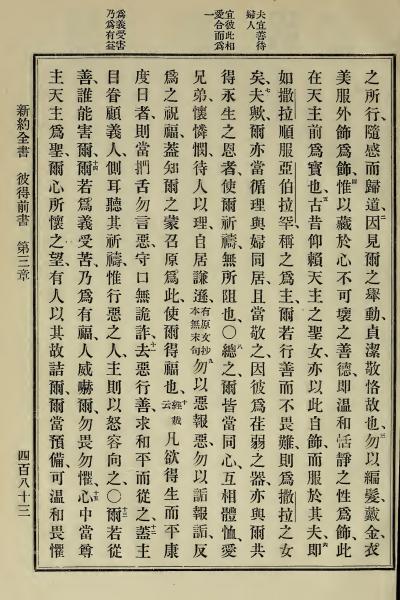 夫宜善待
婦人
宜彼此相
愛合而爲
一
爲義受害
乃爲有益
之所行、隨感而歸道、二因見爾之舉動貞潔敬恪故也、三勿以編髮、戴金、衣
美服、外飾爲飾、四惟以藏於心不可壞之善德、即温和恬靜之性爲飾、此
在天主前爲寶也、五古昔仰賴天主之聖女、亦以此自飾、而服於其夫、六即
如撒拉順服亞伯拉罕、稱之爲主、爾若行善而不畏難、則爲撒拉之女
矣、七夫歟、爾亦當循理與婦同居、且當敬之、因彼爲荏弱之器、亦與爾共
得永生之恩者、使爾祈禱無所阻也、〇八總之爾皆當同心、互相體恤、愛
兄弟、懷憐憫、待人以理、自居謙遜、有原文抄本無末句九勿以惡報惡、勿以詬報詬、反
爲之祝福、蓋知爾之蒙召、原爲此、使爾得福也、十經載云凡欲得生而平康
度日者、則當捫舌勿言惡、守口無詭詐、十一去惡行善、求和平而從之、十二蓋主
目眷顧義人、側耳聽其祈禱、惟行惡之人、主則以怒容向之、〇十三爾若從
善、誰能害爾、十四爾若爲義受苦、乃爲有福、人威嚇爾、勿畏勿懼、十五心中當尊
主天主爲聖、爾心所懷之望、有人以其故詰爾、爾當預備、可温和畏懼
新約全書　彼得前書　第三章　四百八十三